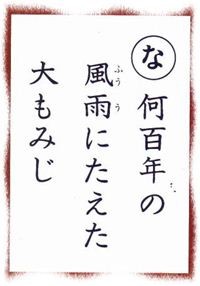 な
何百年の
風雨にたえた
ふうう
大もみじ